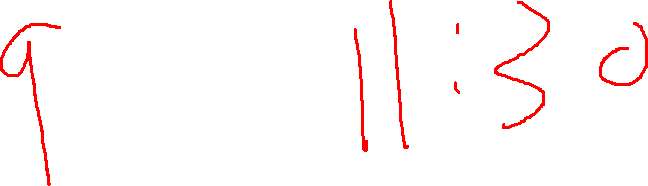 9 11:30